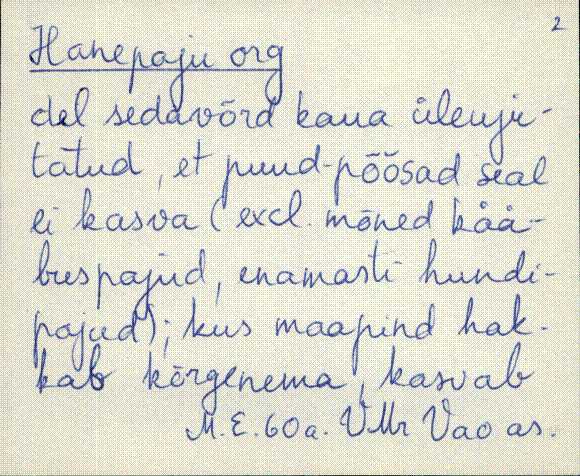 2
Hanepaju org
del sedavõrd kaua üleuju-
tatud, et puud-põõsad seal
ei kasva (excl. mõned kää-
buspajud, enamasti hundi-
pajud); kus maapind hak-
kab kõrgenema, kasvab
M. E. 60 a. VMr Vao as.